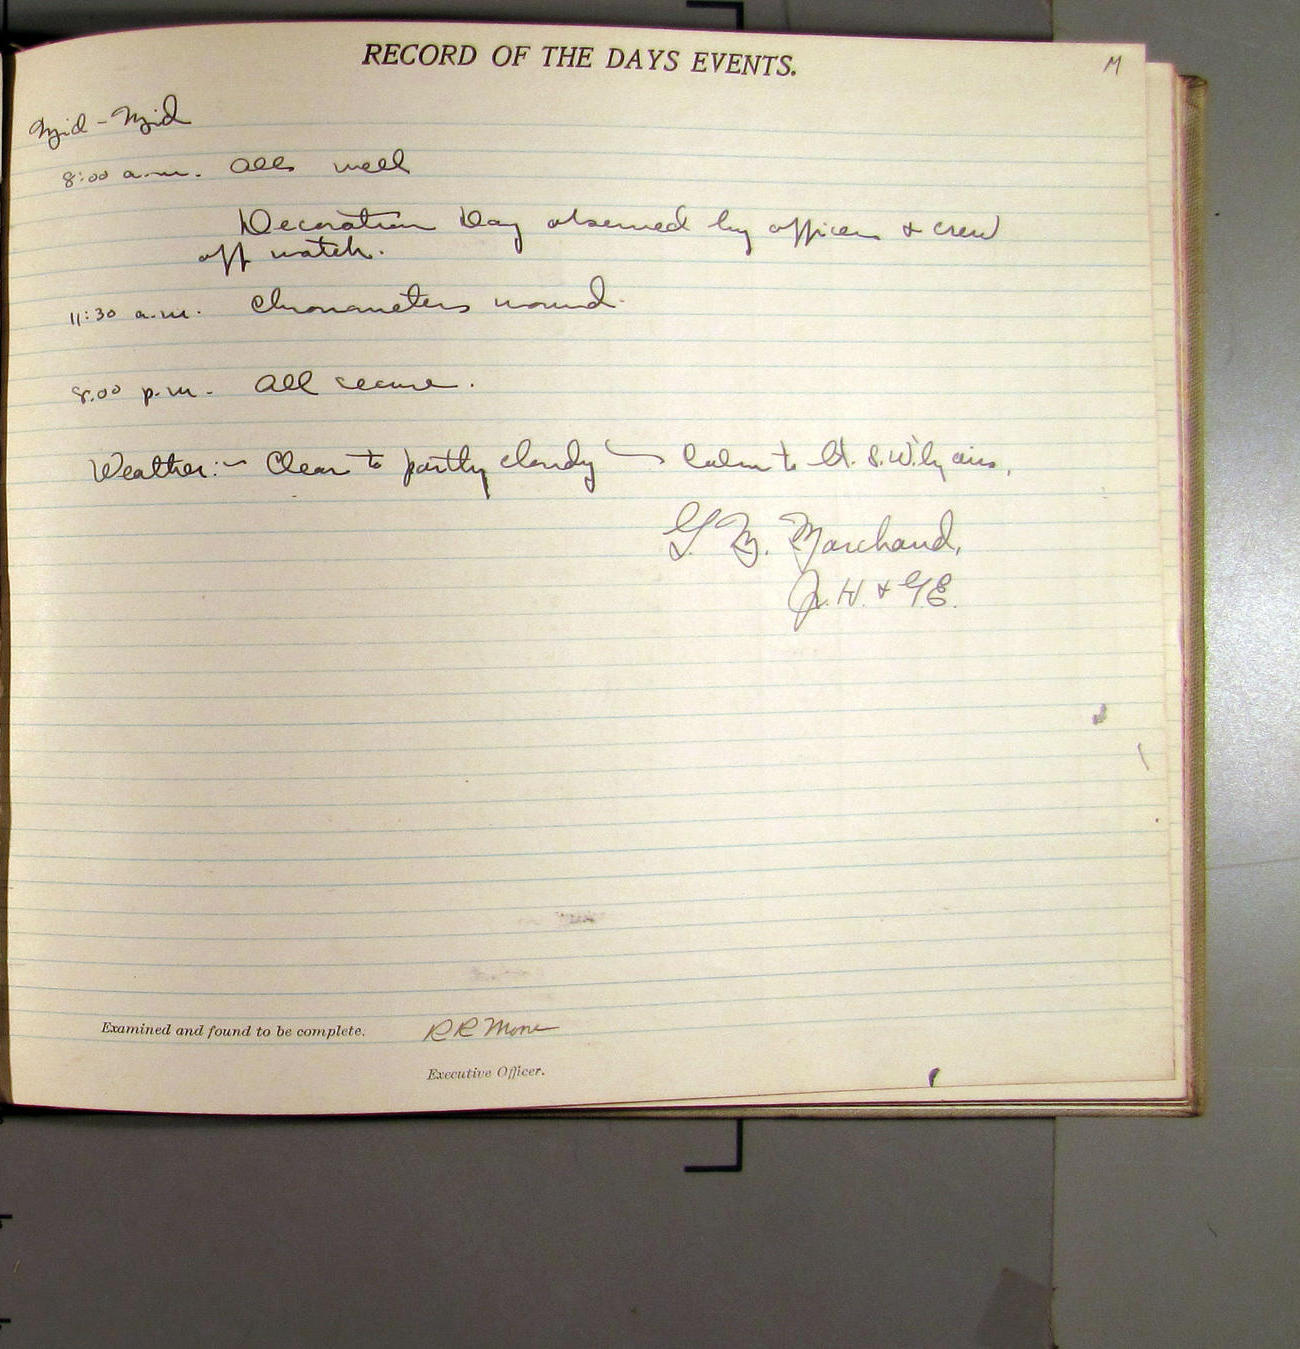 RECORD OF THE DAYS EVENTS.
M
Mid - Mid
8:00 a.m. Alls well
Decoration Day observed by officers & crew
off watch.
11:30 a.m. Chronometers wound.
8:00 p.m. All secure.
Weather:- Clear to partly cloudy - Calm to lt. S.W.ly airs.
G. M. Marchand,
Jr. H. & G.E.
Examined and found to be complete.
Executive Officer.